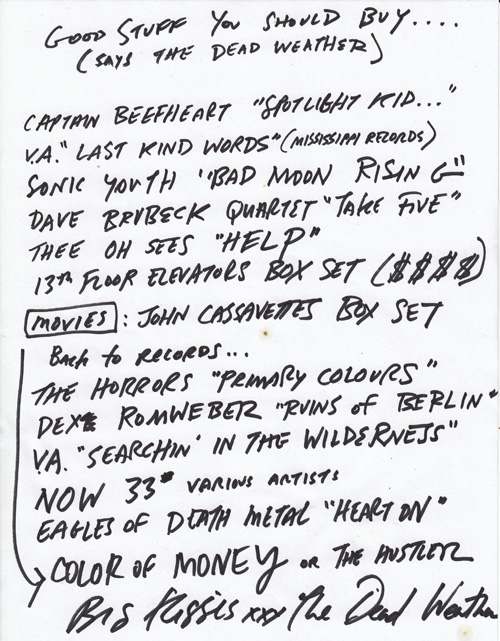 GOOD STUFF YOU SHOULD BUY....
(SAYS THE DEAD WEATHER)
CAPTAIN BEEFHEART "SPOTLIGHT KID..."
V.A. "LAST KIND WORDS" (MISSISSIPPI RECORDS)
SONIC YOUTH "BAD MOON RISING"
DAVE BRUBECK QUARTET "TAKE FIVE"
THEE OH SEES "HELP"
13TH FLOOR ELEVATORS BOX SET ($$$$)
MOVIES: JOHN CASSAVETTES BOX SET
BACK TO RECORDS...
THE HORRORS "PRIMARY COLOURS"
DEX ROMWEBER "RUINS OF BERLIN"
V.A. "SEARCHIN' IN THE WILDERNESS"
NOW 33" VARIOUS ARTISTS
EAGLES OF DEATH METAL "HEART ON"
COLOR OF MONEY OR THE HUSTLER
Big Kisses xxx The Dead Weather